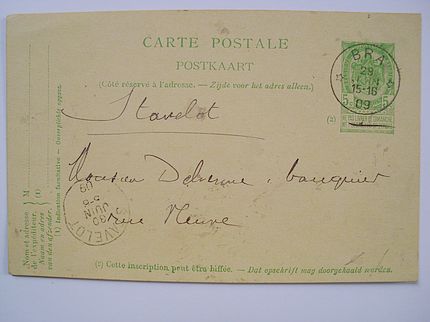 CARTE POSTALE
POSTKAART
(Côté réservé à l'adresse. — Zijde voor het adres alleen.)
BRA
29
15-16
09
5 5
NE PAS LIVRER LE DIMANCHE
Stavelot
(2)
Monsieur Delrenne, banquier
rue Neuve
STAVELOT
JUIN
5-6
09
(2) Cette inscription peut être biffée. — Dat opschrift mag doorgehaald worden.
Nom et adresse de l'expéditeur.
Naam en adres van den afzender.
M
(1)
(1) Indication facultative — Onverplichte opgave.